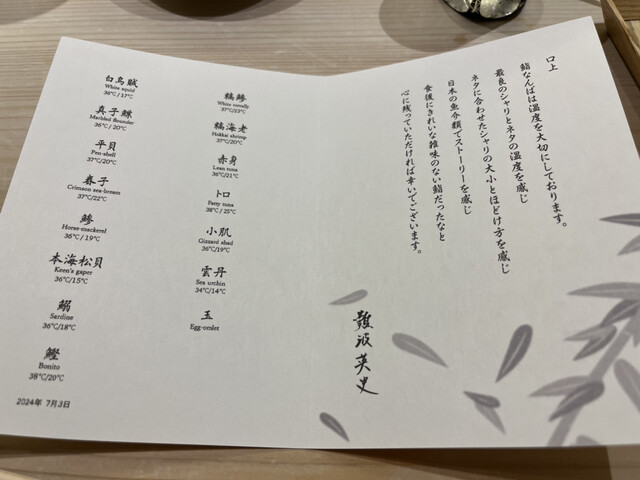 口上
鮨なんばは温度を大切にしております。
最良のシャリとネタの温度を感じ
ネタに合わせたシャリの大小とほどけ方を感じ
日本の魚介類でストーリーを感じ
食後にきれいな雑味のない鮨だったなと
心に残っていただければ幸いでございます。
難波英史
白烏賊
White squid
36℃/17℃
真子鰈
Marbled flounder
36℃/20℃
平貝
Pen-shell
37℃/20℃
春子
Crimson sea-bream
37℃/22℃
鯵
Horse-mackerel
36℃/19℃
本海松貝
Keen's gaper
36℃/15℃
鰯
Sardine
36℃/18℃
鰹
Bonito
38℃/20℃
2024年 7月3日
縞鯵
White trevally
縞海老
Hokkai shrimp
37℃/20℃
赤身
Lean tuna
36℃/21℃
トロ
Fatty tuna
38℃/25℃
小肌
Gizzard shad
36℃/19℃
雲丹
Sea urchin
34℃/14℃
玉
Egg-omlet